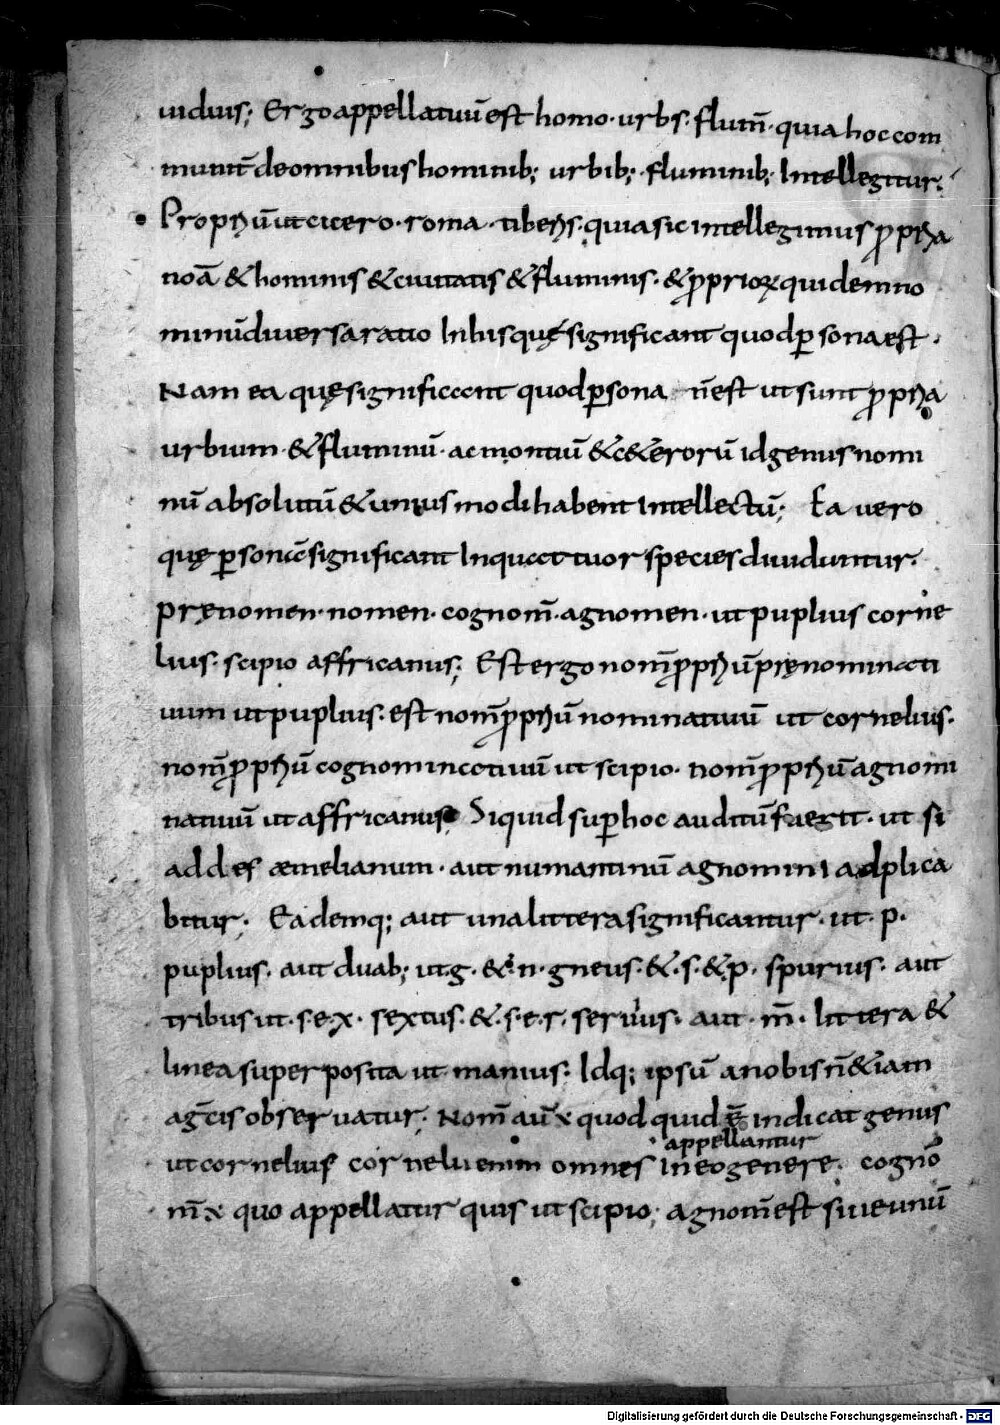 uiduis; Ergo appellatiuū est homo· urbs· flum̄· quia hoc com
munit̄ de omnibus hominib; urbib; fluminib; Intellegitur.
Proprium ut cicero· roma· tiberis· quia sic intellegimus ꝓpria
noā & hominis & ciuitatis & fluminis· & ꝓprioꝝ quidem no
minū diuersa ratio In his quę significant quod ꝑsona est·
Nam ea quę significant quod ꝑsona n̄ est ut sunt ꝓpria
urbium & fluminū· ac montiū & c&erorū id genus nomi
nū absolutū & unius modi habent intellectū; Ea vero
quę ꝑsonas significant In quattuor species diuiduntur·
pręnomen· nomen· cognom̄· agnomen· ut puplius corne
lius· scipio affricanus; Est ergo nom̄ ꝓpriū prenominati
uum ut puplius· est nom̄ ꝓpriū nominatiuū ut cornelius·
nom̄ ꝓpriū cognominatiuū ut scipio· nom̄ ꝓpriū agnomi
natiuū ut affricanus Si quid suꝑ hoc auditū fuerit· ut si
addes æmelianum· aut numantinū agnomini adplica
bitur; Eademq; aut una littera significantur· ut· p·
puplius· aut duab; ut· g· & n· gneus· & · s· & p· spurius· aut
tribus ut· s· e· x· sextus· & · s· e· r· seruius· aut· m̄· littera &
linea superposita ut manius· Idq; ipsū a nobis n̄ & iam
agrecis obseruatur; Nom̄ aū x quod quidē indicat genus
appellantur
ut cornelius cornelii enim omnes in eo genere· cogno
m̄ x quo appellatur quis ut scipio; agnom̄ est siue unū
Digitalisierung gefördert durch die Deutsche Forschungsgemeinschaft - DFG